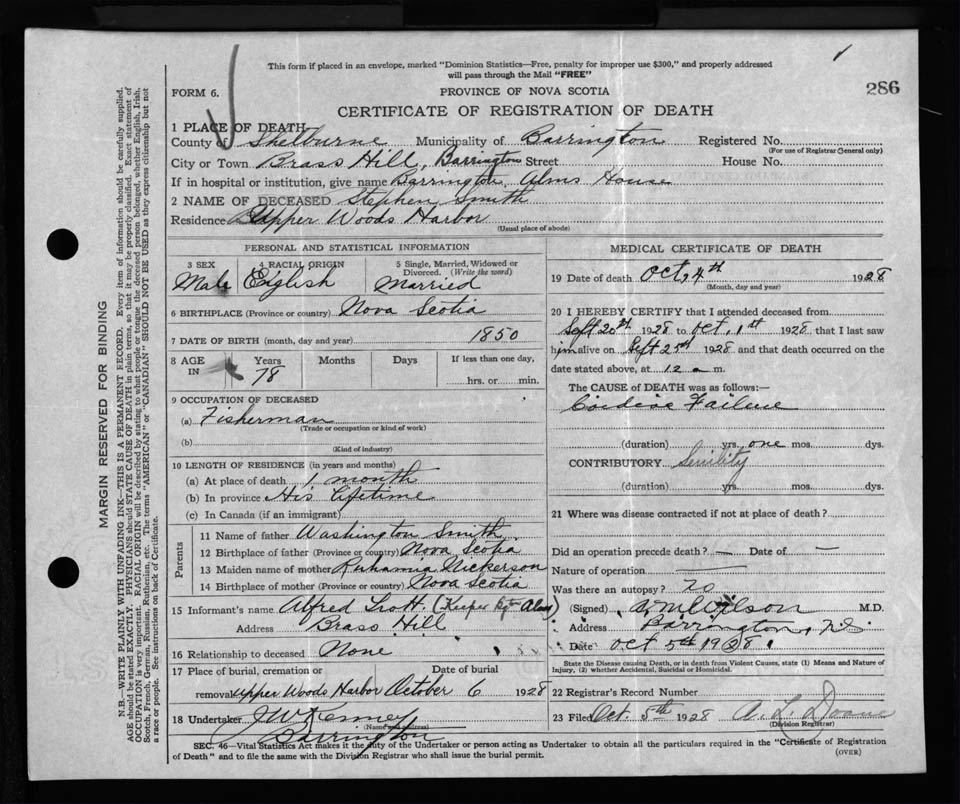 This form if placed in an envelope, marked "Dominion Statistics—Free, penalty for improper use $300," and properly addressed
will pass through the Mail "FREE"
286
FORM 6.
PROVINCE OF NOVA SCOTIA
CERTIFICATE OF REGISTRATION OF DEATH
1 PLACE OF DEATH
County of Shelburne Municipality of Barrington Registered No.
(For use of Registrar General only)
City or Town Brass Hill, Barrington Street House No.
If in hospital or institution, give name Barrington Alms House
2 NAME OF DECEASED Stephen Smith
Residence Upper Woods Harbor
(Usual place of abode)
PERSONAL AND STATISTICAL INFORMATION
3 SEX 4 RACIAL ORIGIN 5 Single, Married, Widowed or Divorced. (Write the word)
Male English Married
6 BIRTHPLACE (Province or country) Nova Scotia
7 DATE OF BIRTH (month, day and year) 1850
8 AGE IN Years Months Days If less than one day,
78 hrs. or min.
9 OCCUPATION OF DECEASED
(a) Fisherman
(Trade or occupation or kind of work)
(b)
(Kind of industry)
10 LENGTH OF RESIDENCE (in years and months)
(a) At place of death 1 month
(b) In province His Lifetime
(c) In Canada (if an immigrant)
Parents
11 Name of father Washington Smith
12 Birthplace of father (Province or country) Nova Scotia
13 Maiden name of mother Ruhamia Nickerson
14 Birthplace of mother (Province or country) Nova Scotia
15 Informant's name Alfred Trott (Keeper Alms)
Address Brass Hill
16 Relationship to deceased None
17 Place of burial, cremation or Date of burial
removal Upper Woods Harbor October 6 1928
18 Undertaker J W Kenney
Barrington
MEDICAL CERTIFICATE OF DEATH
19 Date of death Oct, 4th 1928
(Month, day and year)
20 I HEREBY CERTIFY that I attended deceased from
Sept 20th 1928 to Oct, 1st 1928, that I last saw
him alive on Sept 25th 1928 and that death occurred on the
date stated above, at 12 a m.
The CAUSE of DEATH was as follows:—
Cardiac Failure
(duration) yrs. one mos. dys.
CONTRIBUTORY Senility
(duration) yrs. mos. dys.
21 Where was disease contracted if not at place of death?
Did an operation precede death? — Date of —
Nature of operation —
Was there an autopsy? no
(Signed) Wilson M.D.
Address Barrington, N.S.
Date Oct 5th 1928
State the Disease causing Death, or in death from Violent Causes, state (1) Means and Nature of
Injury, (2) whether Accidental, Suicidal or Homicidal.
22 Registrar's Record Number
23 Filed Oct. 5th 1928 A. L. Doane
(Division Registrar)
SEC. 46—Vital Statistics Act makes it the duty of the Undertaker or person acting as Undertaker to obtain all the particulars required in the "Certificate of Registration
of Death" and to file the same with the Division Registrar who shall issue the burial permit.
(OVER)
MARGIN RESERVED FOR BINDING
N.B.—WRITE PLAINLY WITH UNFADING INK—THIS IS A PERMANENT RECORD. Every item of information should be carefully supplied.
AGE should be stated EXACTLY. PHYSICIANS should STATE CAUSE OF DEATH in plain terms, so that it may be properly classified. Exact statement of
OCCUPATION is very important. RACIAL ORIGIN will be described by stating to what people or tongue the deceased person belonged, whether English, Irish,
Scotch, French, German, Russian, Ruthenian, etc. The terms "AMERICAN" or "CANADIAN" SHOULD NOT BE USED as they express citizenship but not
a race or people. See instructions on back of Certificate.